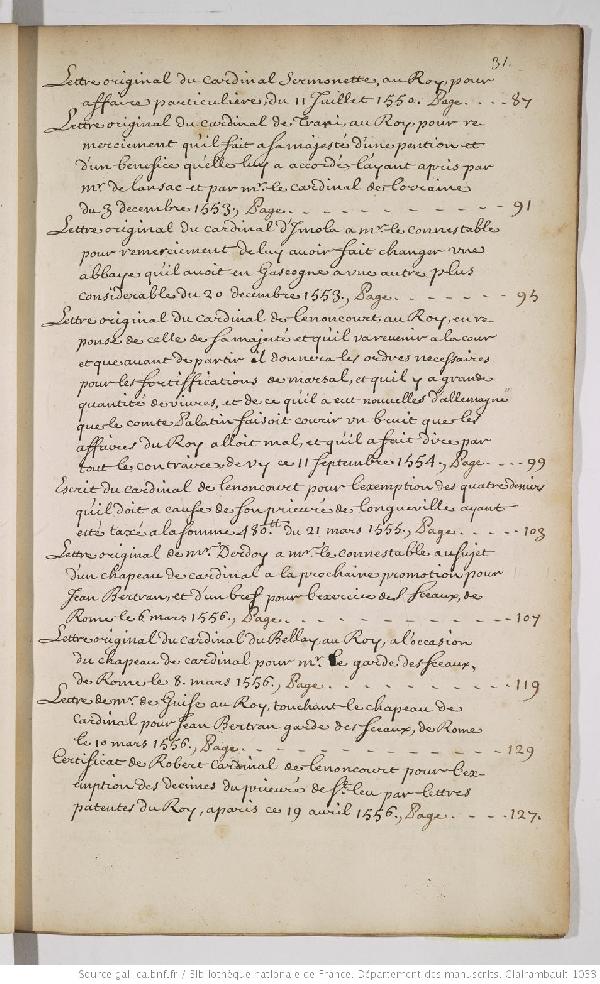 31.
Lettre original du cardinal Sermonette, au Roy, pour
affaire particuliere, du 11 Juillet 1550. Page. . . . . 87
Lettre original du cardinal de Trani, au Roy, pour re
merciement qu'il fait a sa majesté d'une pention et
d'un benefice qu'elle luy a accordé l'ayant apris par
mr. de lansac et par mr. le cardinal de lorraine
du 3 decembre 1553., Page. . - - - - - - - - - 91
Lettre original du cardinal d'Imola a mr. le connestable
pour remerciement de luy avoir fait changer une
abbaye qu'il avoit en Gascogne a une autre plus
considerable du 20 decembre 1553., Page. - - - - - - 95
Lettre original du cardinal de lenoncourt, au Roy, en re-
ponse de celle de sa majesté et qu'il va revenir a la cour
et que avant de partir il donnera les ordres necessaires
pour les fortiffications de marsal, et qu'il y a grande
quantité de vivres, et de ce qu'il a eut nouvelles d'allemagne
que le comte Palatin faisoit courir un bruit que les
affaires du Roy alloit mal, et qu'il a fait dire par
tout le contraire, de Vy ce 11 Septembre 1554., Page. . - - 99
Escrit du cardinal de lenoncourt pour l'exemption des quatre deniers
qu'il doit a cause de son prieuré de longueville ayant
esté taxé a la somme 480tt du 21 mars 1555., Page. . . . - - - 103
Lettre original de mr. Dordoy a mr. le connestable au sujet
d'un chapeau de cardinal a la prochaine promotion pour
Jean Bertran, et d'un bref pour l'exercice des Sceaux, de
Rome le 6 mars 1556., Page. . - - - - - - - - - 107
Lettre original du cardinal du Bellay, au Roy, a l'occasion
du chapeau de cardinal pour mr. le garde des sceaux,
de Rome le 8. mars 1556., Page. - - - - - - - - 119
Lettre de mr. de Guise au Roy, touchant le chapeau de
Cardinal pour Jean Bertran garde des sceaux, de Rome
le 10 mars 1556., Page. - - - - - - - - - - - 129
Certificat de Robert Cardinal de lenoncourt pour l'ex-
emption des decimes du prieuré de St. leu par lettres
patentes du Roy, a paris ce 19 avril 1556., Page. . - - - - 127.
Source gallica.bnf.fr / Bibliothèque nationale de France. Département des manuscrits. Clairambault 1033